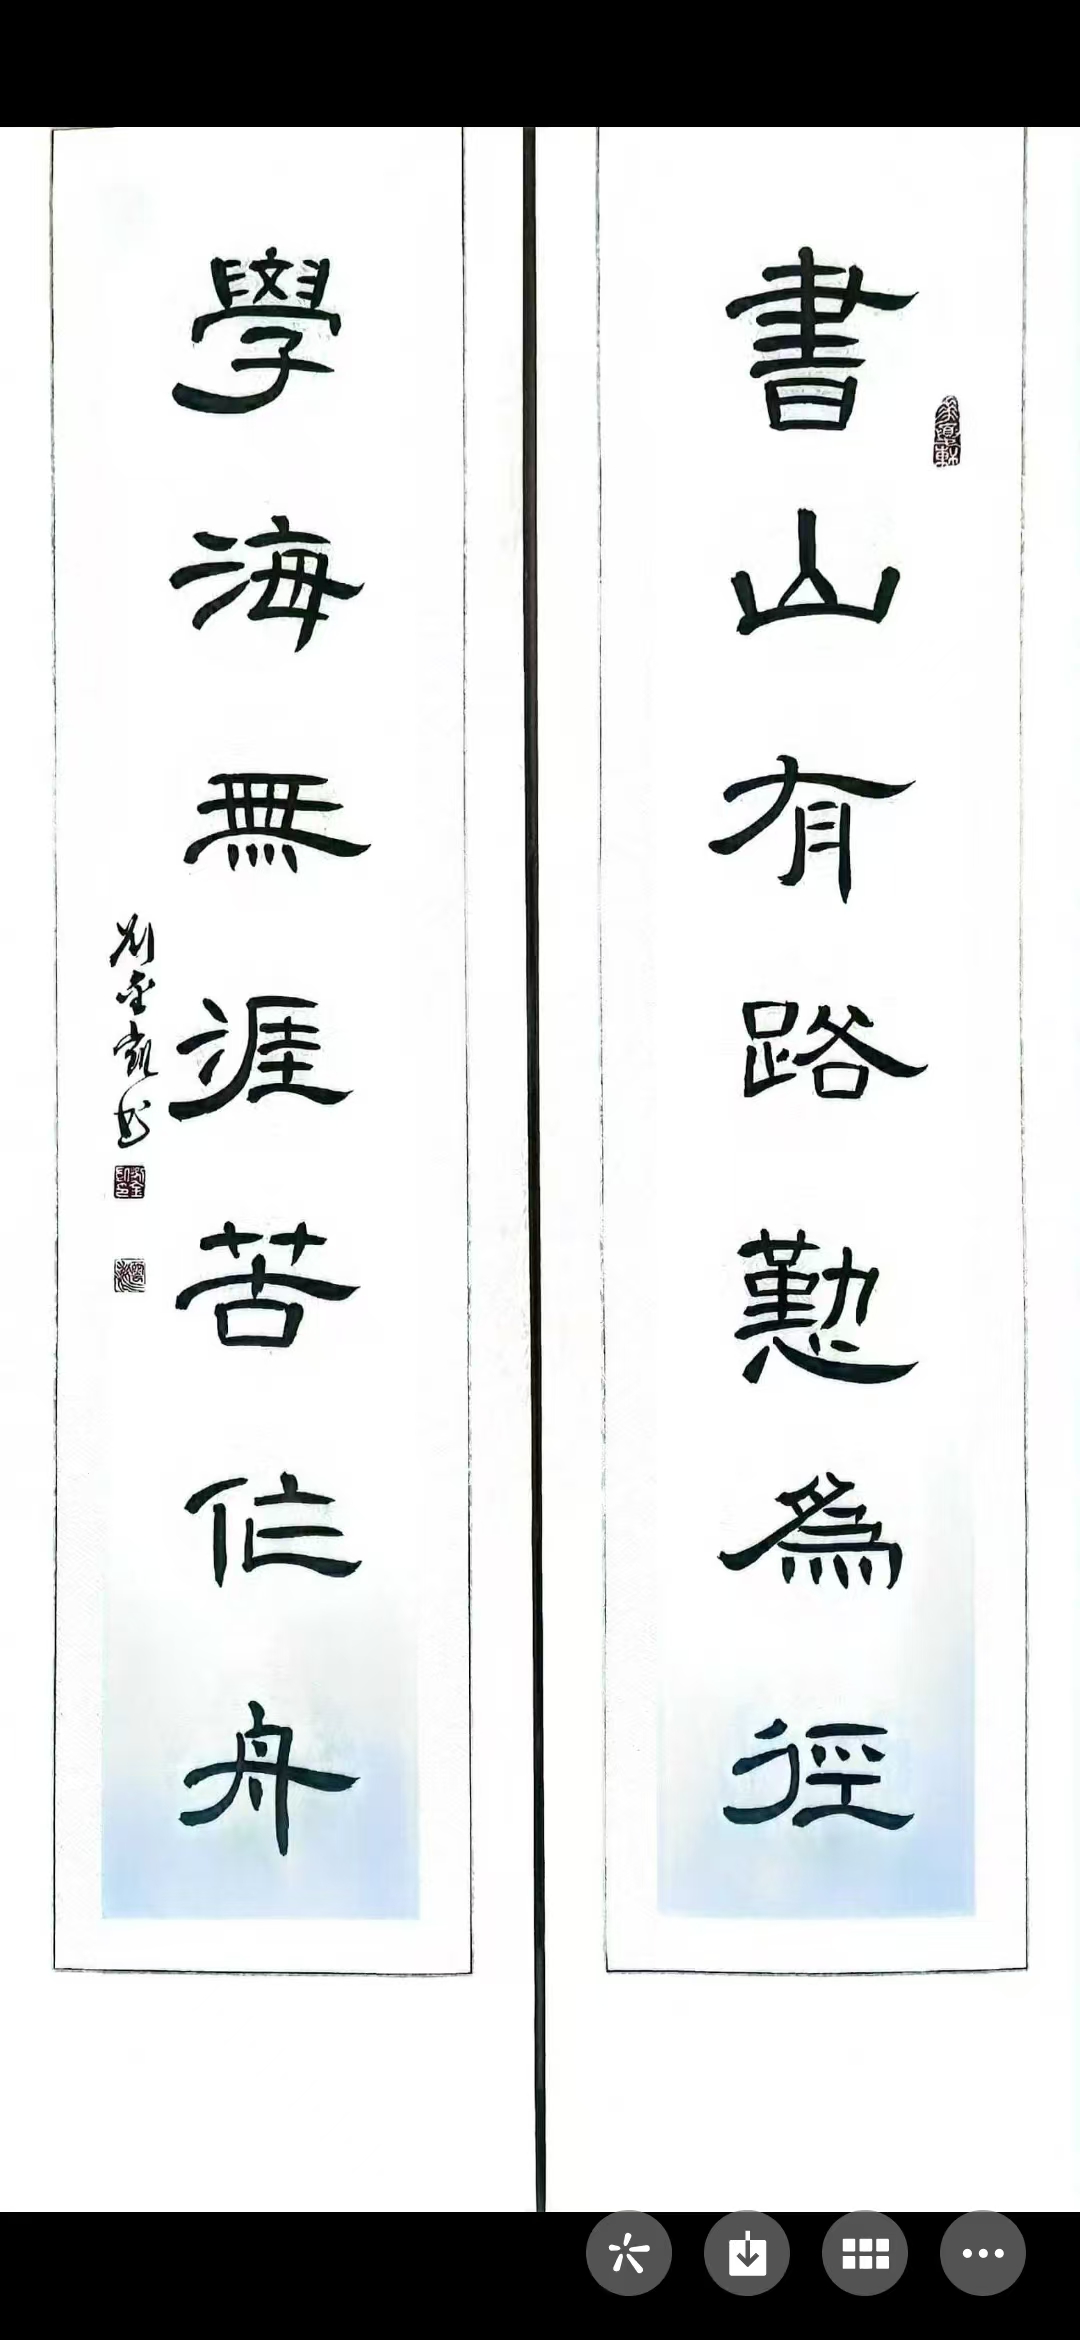 書山有路懃為徑
學海無涯苦作舟
刘金凱书